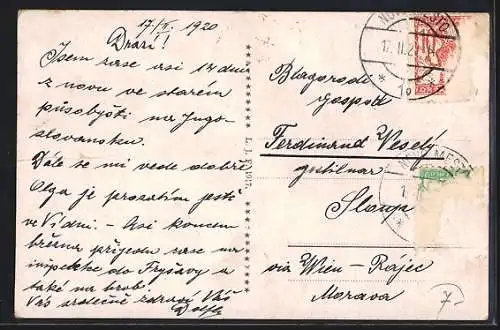 17/II. 1920
Drazí!
Jsem zase asi 14 dní
z novu ve starém
působyšti na Jugo-
slovansku.
Dále se mi vede dobře
Olga je prozatím ještě
ve Vídni. - Asi koncem
března přijedu zase na
inspekce do Fryšavy a
také na hrob.
Vás srdečně zdraví Váš
L. J. P. 1917.
NOVO MESTO
17. II. 2
Blagorodi
Gospod
Ferdinand Veselý
gostilnar
Sloup
via Wien - Rájec
Morava
7.-